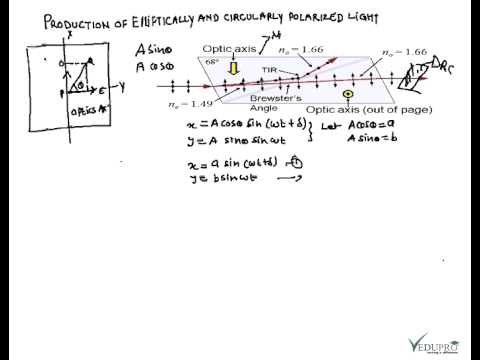 PRODUCTION OF ELLIPTICALLY AND CIRCULARLY POLARIZED LIGHT
X
Y
O
P
E
θ
A sinθ
A cosθ
Optic axis
M
nₒ = 1.66
nₒ = 1.66
68°
TIR
nₑ = 1.49
Brewster's
Angle
Optic axis (out of page)
x = A cosθ sin (ωt + δ)
y = A sinθ sin ωt
Let A cosθ = a
A sinθ = b
x = a sin (ωt+δ)
y = b sin ωt
VEDUPRO